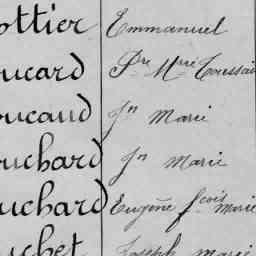 ottier Emmanuel
oucard Pre Mrie Toussai
oucaud Jn Marie
ouchard Jn Marie
uchard Eugène fcois Marie
uchet Joseph Marie